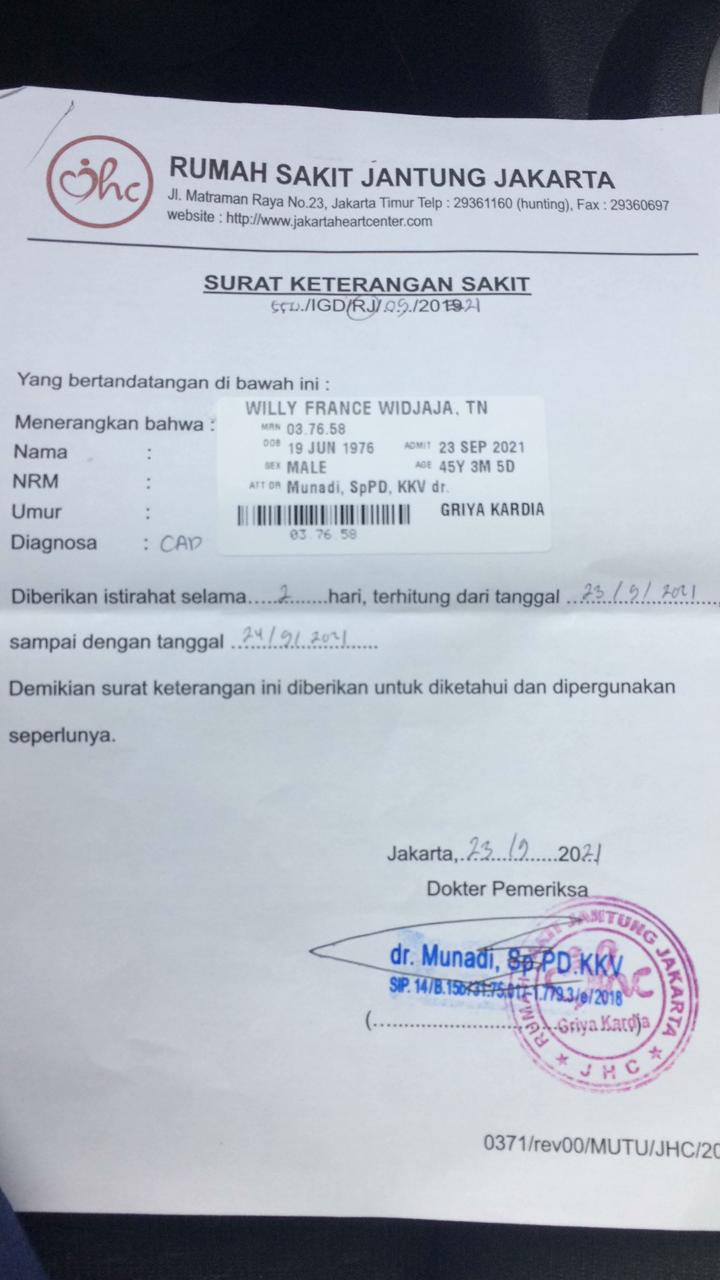 Jhc
RUMAH SAKIT JANTUNG JAKARTA
Jl. Matraman Raya No.23, Jakarta Timur Telp : 29361160 (hunting), Fax : 29360697
website : http://www.jakartaheartcenter.com
SURAT KETERANGAN SAKIT
./IGD/RJ/.09./2019 21
Yang bertandatangan di bawah ini :
Menerangkan bahwa :
WILLY FRANCE WIDJAJA, TN
MRN 03.76.58
Nama :
DOB 19 JUN 1976 ADMIT 23 SEP 2021
SEX MALE AGE 45Y 3M 5D
NRM :
ATT DR Munadi, SpPD, KKV dr.
Umur :
GRIYA KARDIA
03.76.58
Diagnosa : CAD
Diberikan istirahat selama.....2.......hari, terhitung dari tanggal ...23/9/2021....,
sampai dengan tanggal ..24/9/2021......
Demikian surat keterangan ini diberikan untuk diketahui dan dipergunakan
seperlunya.
Jakarta,.23../9.....2021
Dokter Pemeriksa
dr. Munadi, Sp.PD.KKV
(..............................Griya Kardia)
RUMAH SAKIT JANTUNG JAKARTA
★ JHC ★
0371/rev00/MUTU/JHC/20